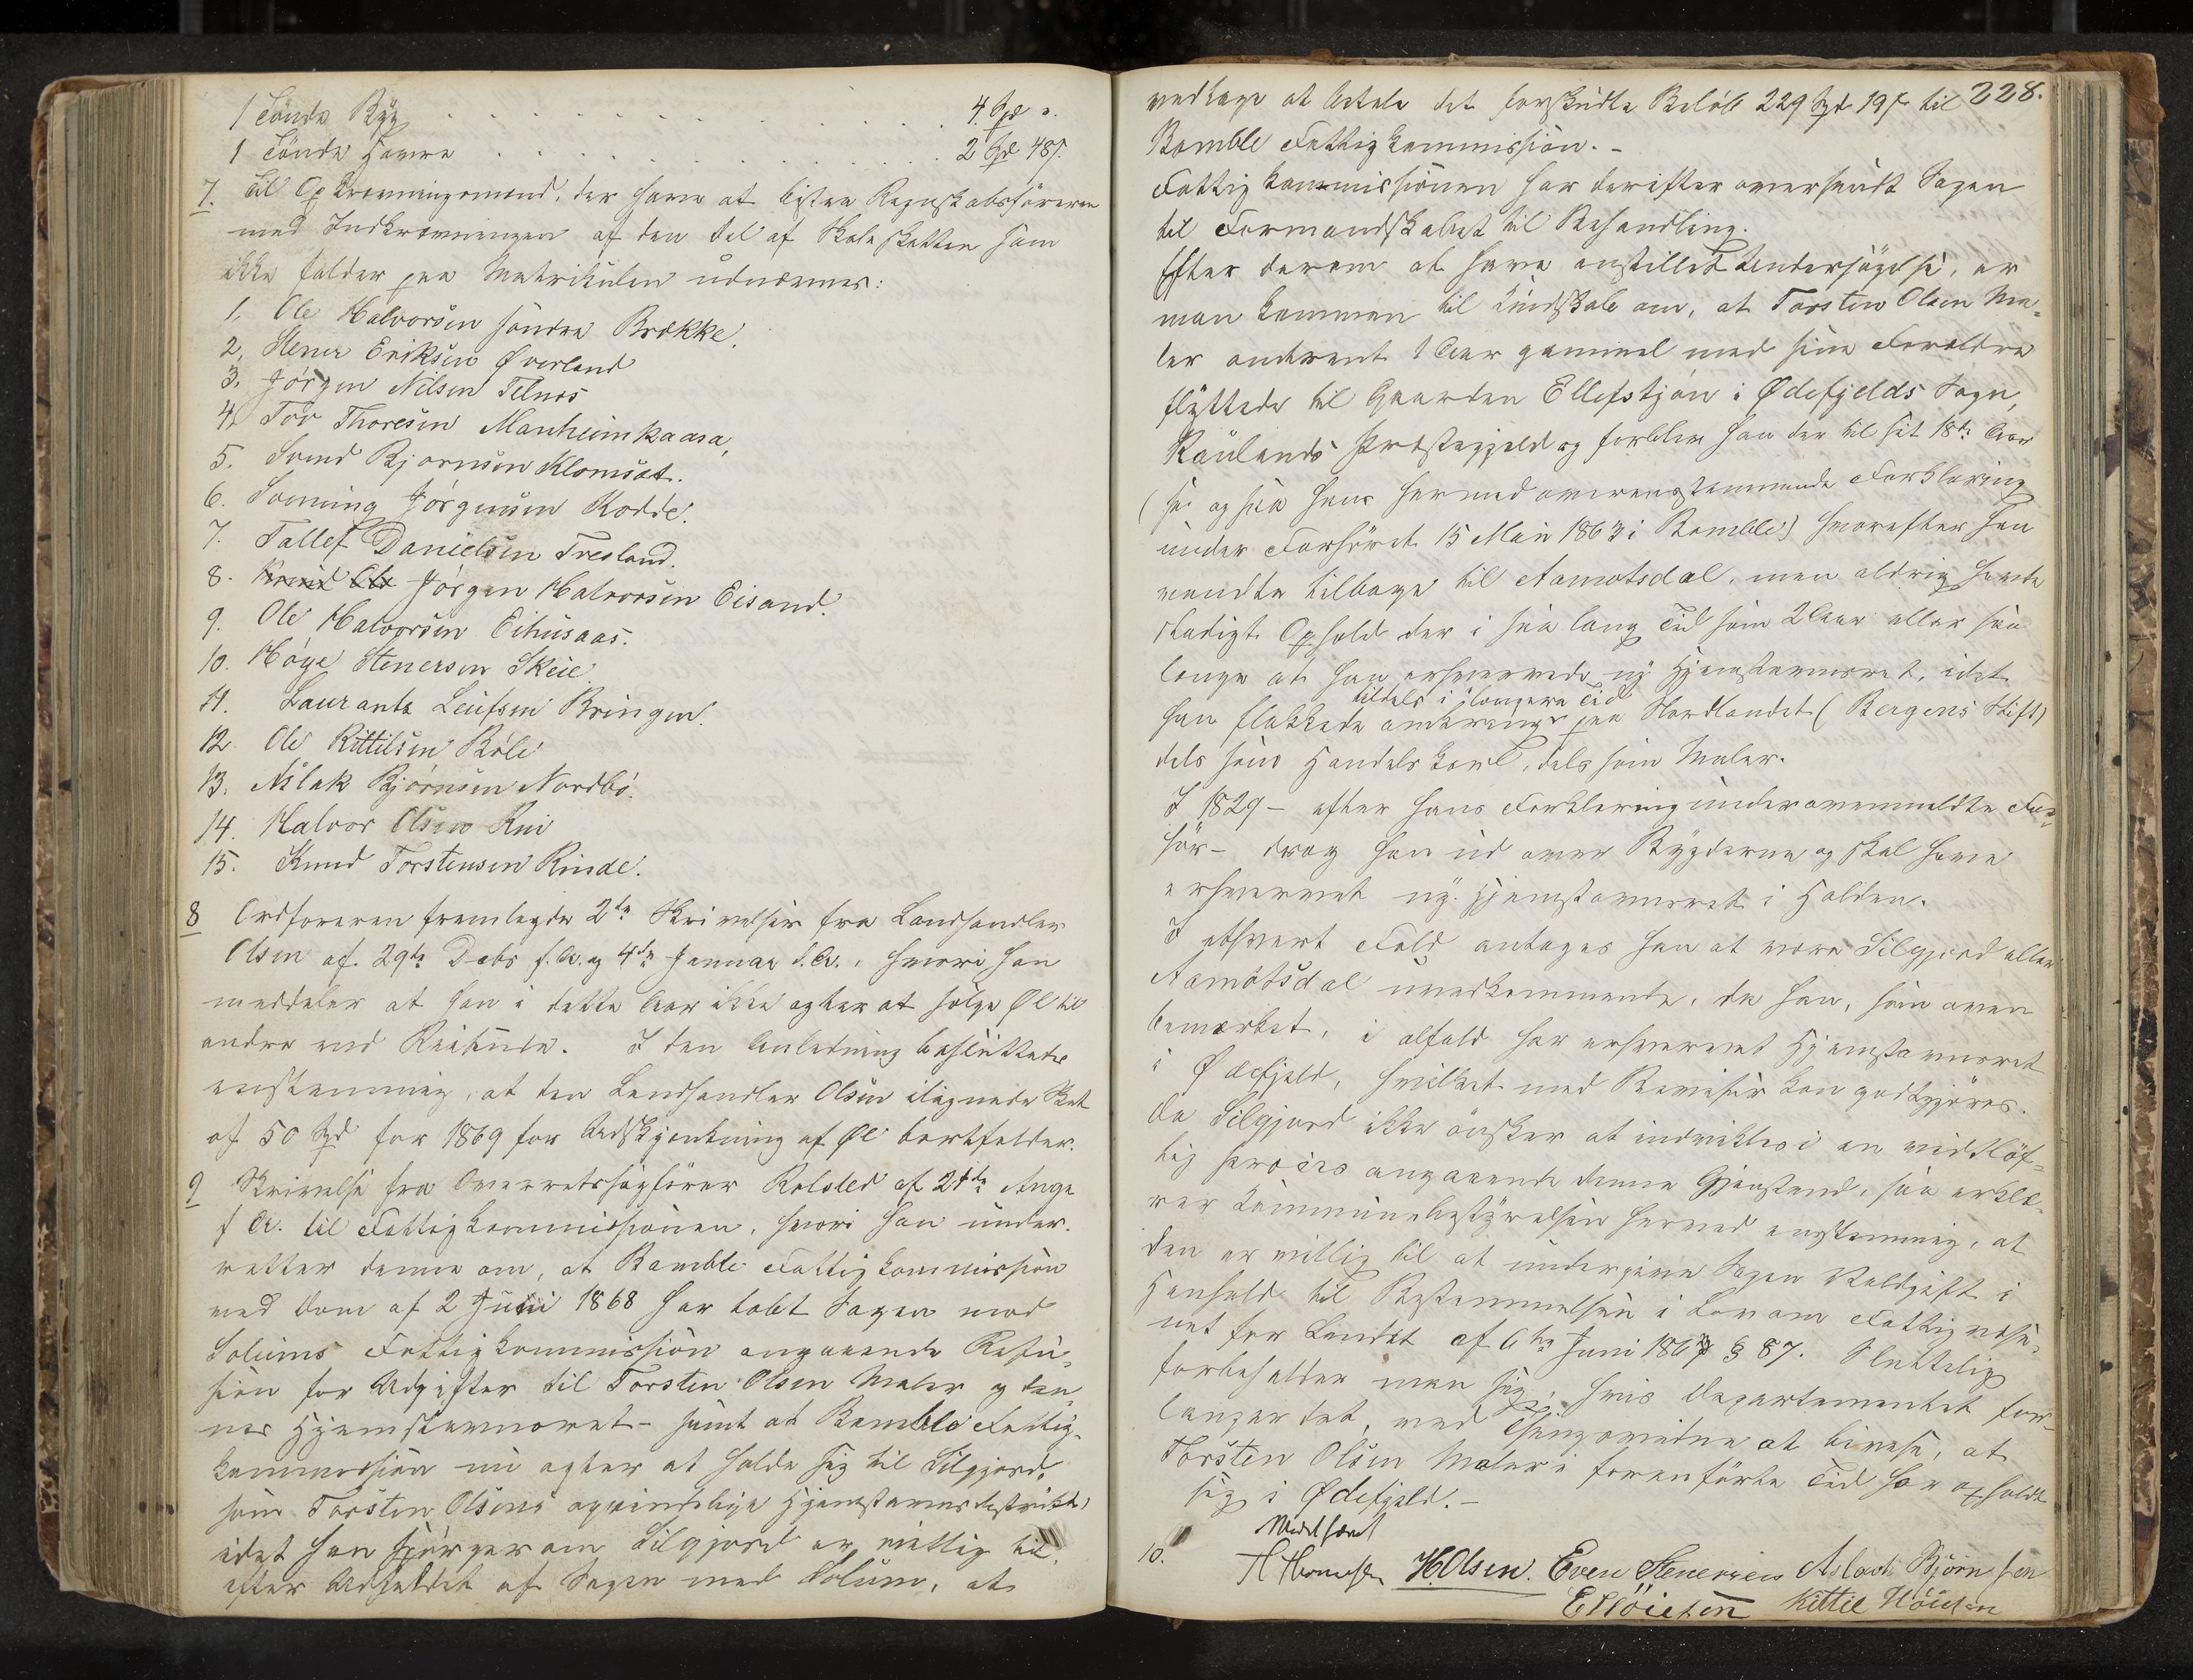 1 Tönde Byg . . . . . . . . . . . . . 4 Spd ".
1 Tönde Havre . . . . . . . . . . . . 2 Spd 48 s.
7. Til Opkrævningsmænd, der have at bistaa Regnskabsföreren
med Indkrævningen af den Del af Skoleskatten som
ikke falder paa Matrikulen udnævnes:
1. Ole Halvorsen söndre Brække.
2. Stener Eriksen Øverland
3. Jörgen Nilsen Telnes
4. Tov Thoresen Manheimkaasa,
5. Svend Bjørnsen Klomset.
6. Sveinung Jörgensen Kodde.
7. Tallef Danielsen Tresland.
8. Jörgen Halvorsen Eisand.
9. Ole Halvorsen Eihusaas.
10. Höye Stenersen Skeie.
11. Laurants Leufsen Bringen.
12. Ole Kittilsen Böle
13. Aslak Bjørnsen Nordbö.
14. Halvor Olsen Rui
15. Knud Torstensen Rinde.
8 Ordføreren fremlagde 2de Skrivelser fra Landhandler
Olsen af 29de Decbr f. A. og 4de Januar d. A., hvori han
meddeler at han i dette Aar ikke agter at sælge Øl til
andre end Reisende. I den Anledning besluttedes
enstemmig, at den Landhandler Olsen ilignede Skat
af 50 Spd for 1869 for Udskjænkning af Øl bortfalder.
9 Skrivelse fra Overretssagfører Rolsted af 21de Augu
f. A. til Fattigkommissionen, hvori han under-
retter denne om, at Bamble Fattigkommission
ved Dom af 2 Juni 1868 har tabt Sagen mod
Solums Fattigkommission angaaende Refu-
sion for Udgifter til Torsten Olsen Maler og den-
nes Hjemstavnsret - samt at Bamble Fattig-
kommission nu agter at holde sig til Silgjord,
som Torsten Olsens oprindelige Hjemstavnsdistrikt,
idet han spørger om Silgjord er villig til,
efter Udfaldet af Sagen med Solum, at
228.
vedtage at betale det forskudte Beløb 229 Spd 19 s til
Bamble Fattigkommission. -
Fattigkommissionen har derefter oversendt Sagen
til Formandskabet til Behandling.
Efter derom at have anstillet Undersögelse, er
man kommen til Kundskab om, at Torsten Olsen Ma-
ler omtrent 1 Aar gammel med sine Forældre
flyttede til Gaarden Ellefstjøn i Ødefjelds Sogn,
Raulands Præstegjeld og forblev han der til sit 18de Aar
(se ogsaa hans hermed overensstemmende Forklaring
under Forhöret 15 Mai 1863 i Bamble) hvorefter han
vendte tilbage til Aamotsdal, men aldrig havde
stadigt Ophold der i saa lang Tid som 2 Aar eller saa
længe at han erhvervede ny Hjemstavnsret, idet
tildels i længere Tid
han flakkede omkring paa Nordlandet (Bergens Stift)
dels som Handelskarl, dels som Maler.
I 1829 - efter hans Forklaring under ovenmeldte For-
hör - drog han ud over Bygderne og skal have
erhvervet ny Hjemstavnsret i Holden.
I ethvert Fald antages han at være Silgjord eller
Aamotsdal uvedkommende, da han, som oven
bemærket, i alfald har erhvervet Hjemstavnsret
i Ødefjeld, hvilket med Beviser kan godtgjøres.
Da Silgjord ikke ønsker at indvikles i en vidtløf-
tig Proces angaaende denne Gjenstand, saa erklæ-
rer Kommunebestyrelsen herved enstemmig, at
den er villig til at undergive Sagen Voldgift i
Henhold til Bestemmelsen i Lov om Fattigvæse-
net for Landet af 6te Juni 1863 § 87. Sluttelig
forbeholder man sig, hvis Departementet for-
langer det, ved Thingsvidne at bevise, at
Thorsten Olsen Maler i forenførte Tid har opholdt
sig i Ødefjeld. -
10. Vedtaget
H. Olsen. Even Stenersen Aslach Bjørnsen
Kittil Höiesen